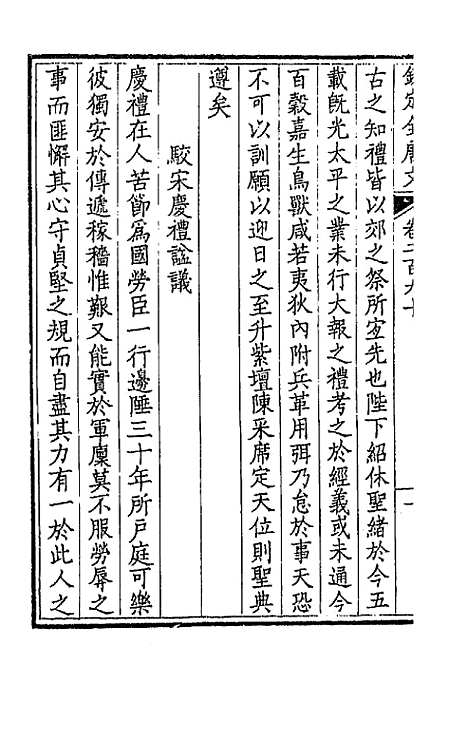 欽定全唐文 卷二百九十 一
古之知禮皆以郊之祭所宜先也陛下紹休聖緒於今五
載旣光太平之業未行大報之禮考之於經義或未通今
百穀嘉生鳥獸咸若夷狄內附兵革用弭乃怠於事天恐
不可以訓願以迎日之至升紫壇陳采席定天位則聖典
遵矣
駮宋慶禮諡議
慶禮在人苦節爲國勞臣一行邊陲三十年所戶庭可樂
彼獨安於傳遞稼穡惟艱又能實於軍廩莫不服勞辱之
事而匪懈其心守貞堅之規而自盡其力有一於此人之